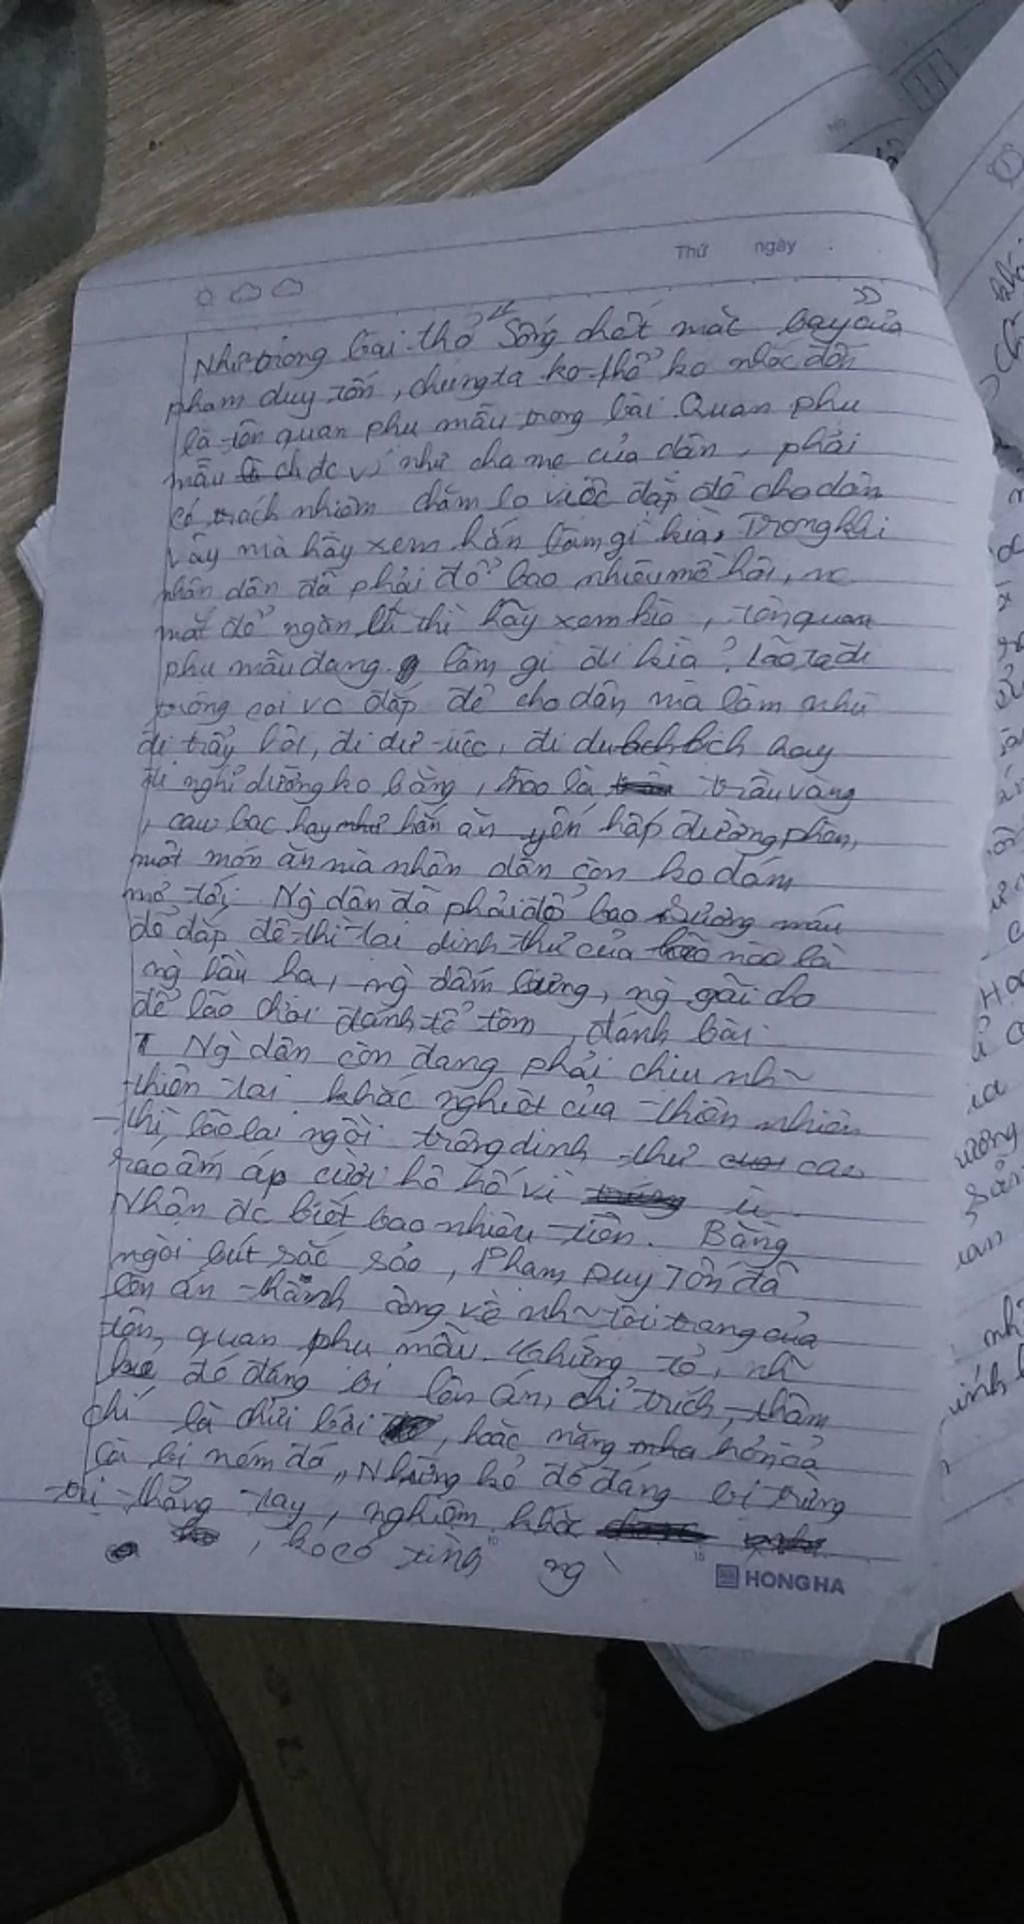 Thứ ngày
Như trong bài thơ "Sống chết mặc bay" của
phạm duy tốn, chúng ta ko thể ko nhắc đến
là tên quan phụ mẫu trong bài. Quan phụ
mẫu đc ví như cha mẹ của dân, phải
có trách nhiệm chăm lo việc đắp đê cho dân
vậy mà hãy xem hắn làm gì kìa, Trong khi
nhân dân đã phải đổ bao nhiêu mồ hôi, nc
mắt đổ ngàn lít thì hãy xem kìa, tên quan
phụ mẫu đang làm gì đi kìa? lão ta đi
trông coi vc đắp đê cho dân mà làm như
đi trẩy hội, đi dự tiệc, đi du lịch hay
đi nghỉ dưỡng ko bằng, nào là trầu vàng
, cau bạc hay hắn ăn yến hấp đường phèn,
một món ăn mà nhân dân còn ko dám
mơ tới, Ng dân đã phải đổ bao xương máu
để đắp đê thì tại dinh thự của lão nào là
ng hầu hạ, ng đấm lưng, ng gãi cho
để lão chơi đánh tổ tôm, đánh bài.
Ng dân còn đang phải chịu nh~
thiên tai khắc nghiệt của thiên nhiên
thì, lão lại ngồi trong dinh thự cao
ráo ấm áp cười hô hố vì ù.
Nhận đc biết bao nhiêu tiền. Bằng
ngòi bút sắc sảo, Phạm Duy Tốn đã
lên án thành công về nh~ tội trạng của
tên quan phụ mẫu. nh~
kẻ đó đáng bị lên án, chỉ trích, thậm
chí là chửi bới, hoặc nặng hơn cả
là bị ném đá, Những kẻ đó đáng bị trừng
trị thẳng tay, nghiêm khắc
, ko có ng
HONG HA